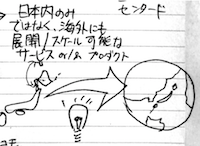 日本内のみ
ではなく、海外にも
展開/スケール可能な
サービス or/& プロダクト
センタード